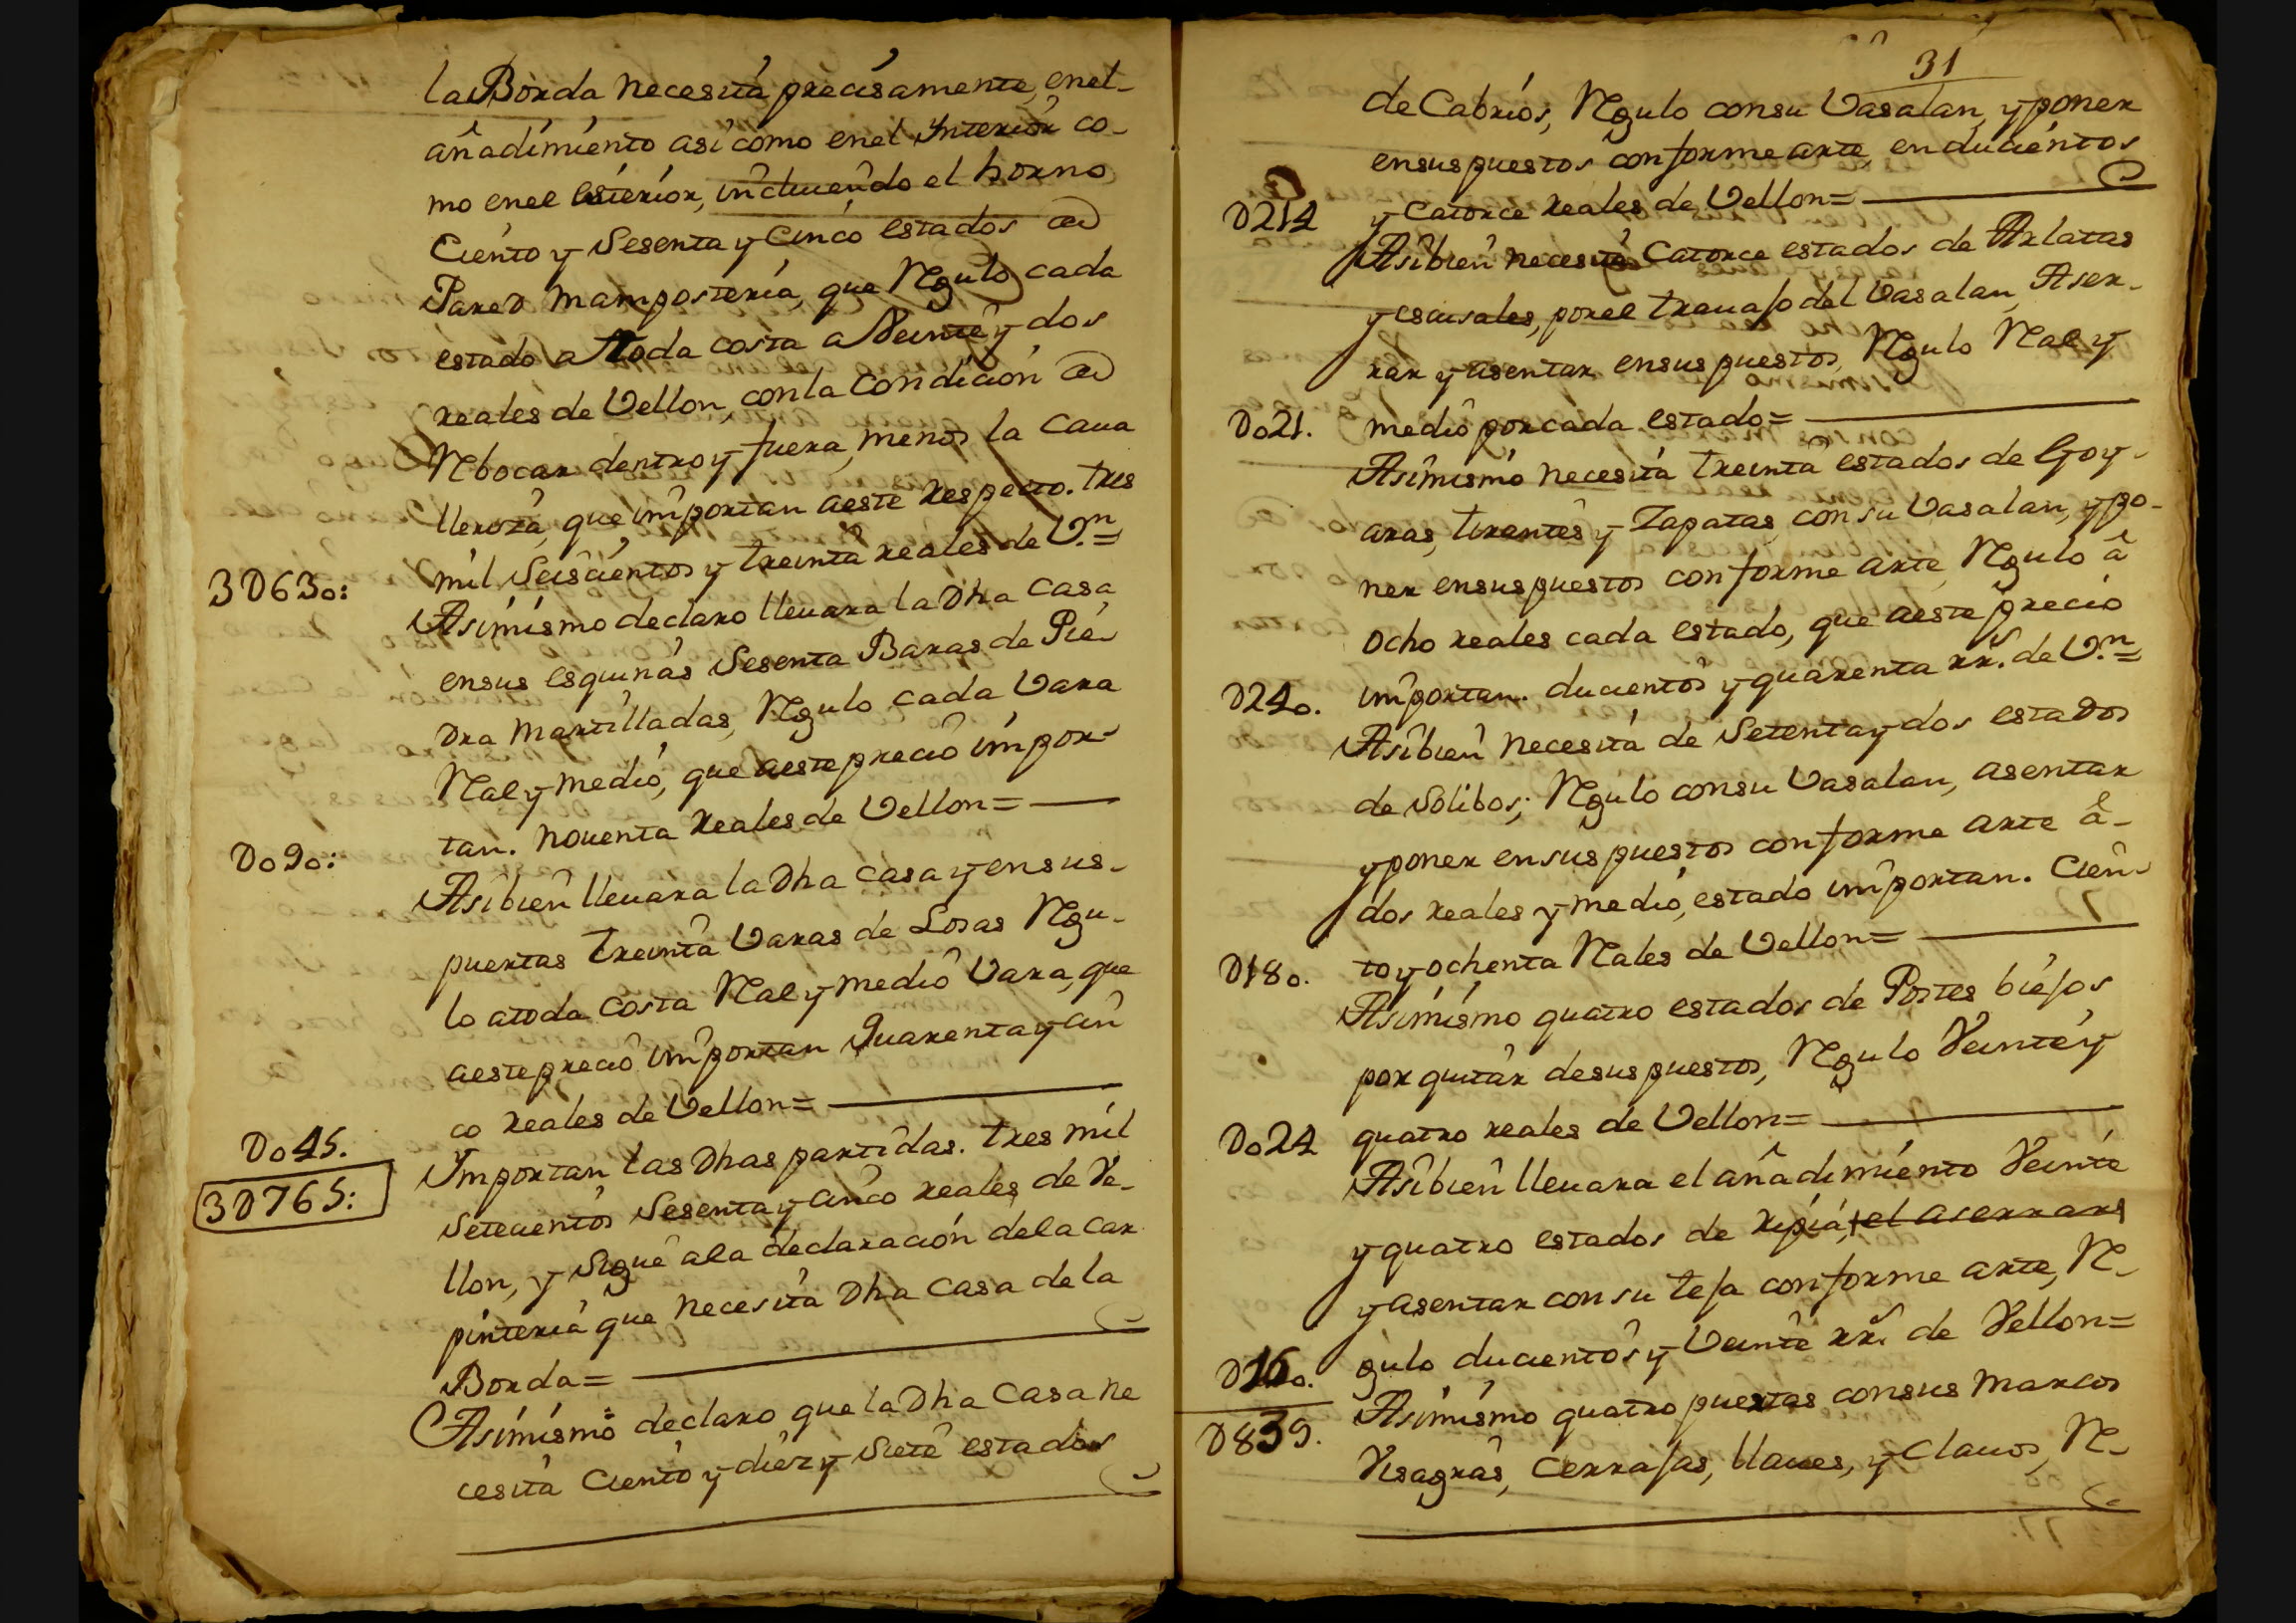 la Borda necesita precisamente, en el
añadimiento asi como en el Interior co-
mo en el esterior, incluiendo el horno
Ciento y Sesenta y Cinco estados de
Pared mamposteria, que Regulo cada
estado a toda costa a Veinte y dos
reales de Vellon, con la Condicion de
Rebocar dentro y fuera, menos la Caua
lleroza, que importan a este respecto. tres
3D630: mil Seiscientos y treinta reales de V.n=
Asimismo declaro lleuara la Dha Casa
en sus esquinas Sesenta Baras de Pie-
dra martilladas, Regulo cada Vara
Real y medio, que a este precio impor-
Do9o: tan. nouenta Reales de Vellon=
Asibien lleuara la Dha Casa y en sus-
puertas treinta Varas de Losas Regu-
lo a toda costa Real y medio Vara, que
a este precio importan quarenta y cin
Do45. co reales de Vellon=
3D765: Importan las Dhas partidas. tres mil
Setecientos Sesenta y cinco reales de Ve-
llon, y Sigue a la declaracion de la Car
pinteria que necesita Dha Casa de la
Borda=
Asimismo declaro que la Dha Casa ne
cesita Ciento y diez y Siete estados
31
de Cabrios, Regulo con su Vasalan, y poner
en sus puestos conforme arte, en ducientos
D214 y Catorce reales de Vellon=
Asibien necesita Catorce estados de Arlatas
y escusales, por el trauajo del Vasalan, Aser-
rar y asentar en sus puestos, Regulo Real y
Do21. medio por cada estado=
Asimismo necesita treinta estados de Goy-
aras, tirantes y Zapatas, con su Vasalan, y po-
ner en sus puestos conforme arte Regulo â
ocho reales cada estado, que a este precio
D24o. importan. ducientos y quarenta rr.s de V.n=
Asibien necesita de Setenta y dos estados
de Solibos; Regulo con su Vasalan, asentar
y poner en sus puestos conforme arte â-
dos reales y medio, estado importan. Cien-
D18o. to y ochenta Reales de Vellon=
Asimismo quatro estados de Postes biejos
por quitar de sus puestos, Regulo Veinte y
Do24 quatro reales de Vellon=
Asibien lleuara el añadimiento Veinte
y quatro estados de ripia, el aserrar
y asentar con su teja conforme arte, Re-
gulo ducientos y Veinte rr.s de Vellon=
Asimismo quatro puertas con sus marcos
D839. Visagras, Cerrajas, llaues, y Clauos, Re-